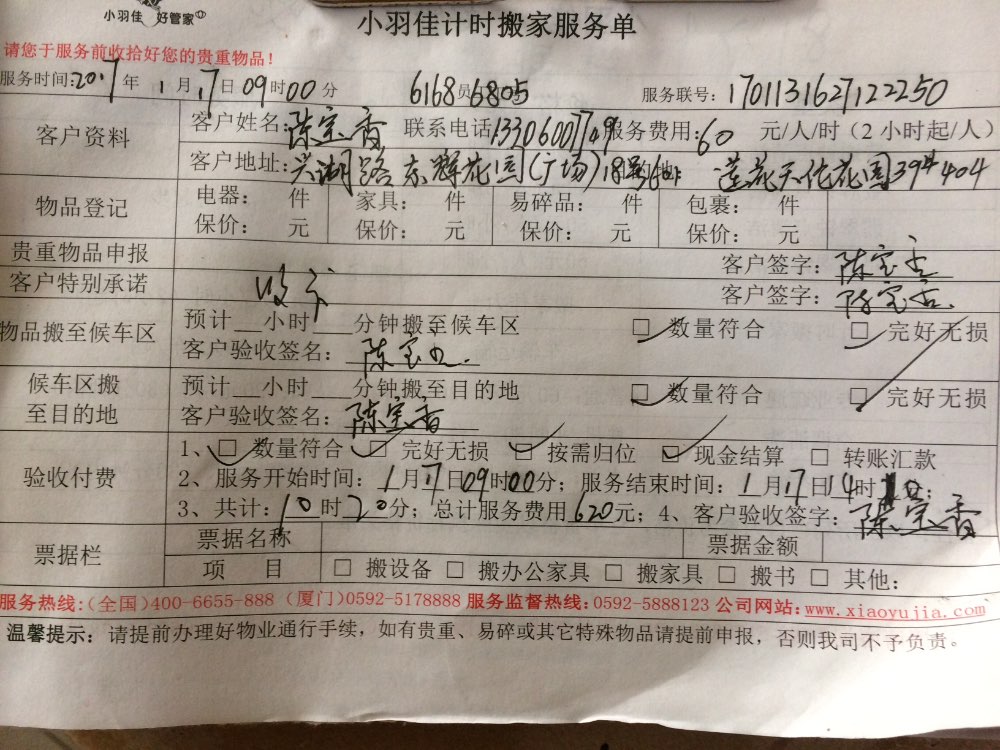 小羽佳 好管家
小羽佳计时搬家服务单
请您于服务前收拾好您的贵重物品！
服务时间:2017年 1月17日09时00分 6168员6805 服务联号: 170113162712250
客户资料
客户姓名:陈宝香 联系电话13306007749服务费用:60 元/人/时（2小时起/人）
客户地址:兴湖路东辉花园(广场)18号 莲花天伦花园39#404
物品登记
电器： 件 家具： 件 易碎品： 件 包裹： 件
保价： 元 保价： 元 保价： 元 保价： 元
贵重物品申报 客户签字：陈宝香
客户特别承诺 客户签字：陈宝香
物品搬至候车区
预计__小时__分钟搬至候车区 □ 数量符合 □ 完好无损
客户验收签名：陈宝香
候车区搬至目的地
预计__小时__分钟搬至目的地 □ 数量符合 □ 完好无损
客户验收签名：陈宝香
验收付费
1、□ 数量符合 □ 完好无损 □ 按需归位 □ 现金结算 □ 转账汇款
2、服务开始时间：1月17日09时00分；服务结束时间：1月17日14时10；
3、共计：10时20分；总计服务费用620元；4、客户验收签字：陈宝香
票据栏
票据名称 票据金额
项 目 □ 搬设备 □ 搬办公家具 □ 搬家具 □ 搬书 □ 其他：
服务热线:(全国)400-6655-888 (厦门)0592-5178888 服务监督热线:0592-5888123 公司网站:www.xiaoyujia.com
温馨提示：请提前办理好物业通行手续，如有贵重、易碎或其它特殊物品请提前申报，否则我司不予负责。